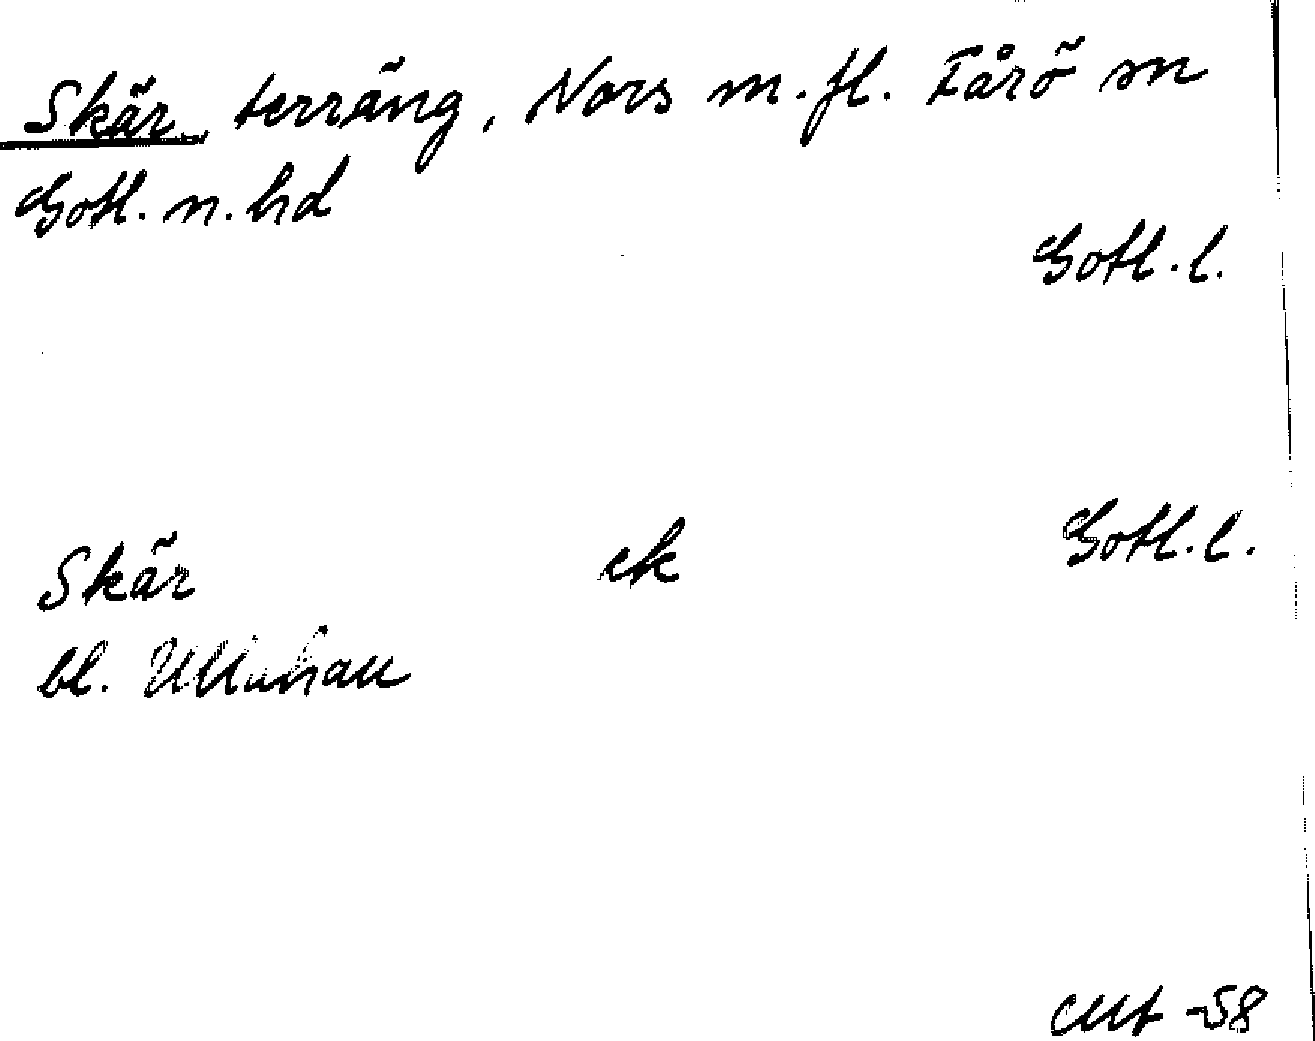 Skär, terräng, Nors m.fl. Fårö sn
Gotl. n. hd
Gotl. l.
Skär ek Gotl. l.
bl. Ullahau
CMt -58